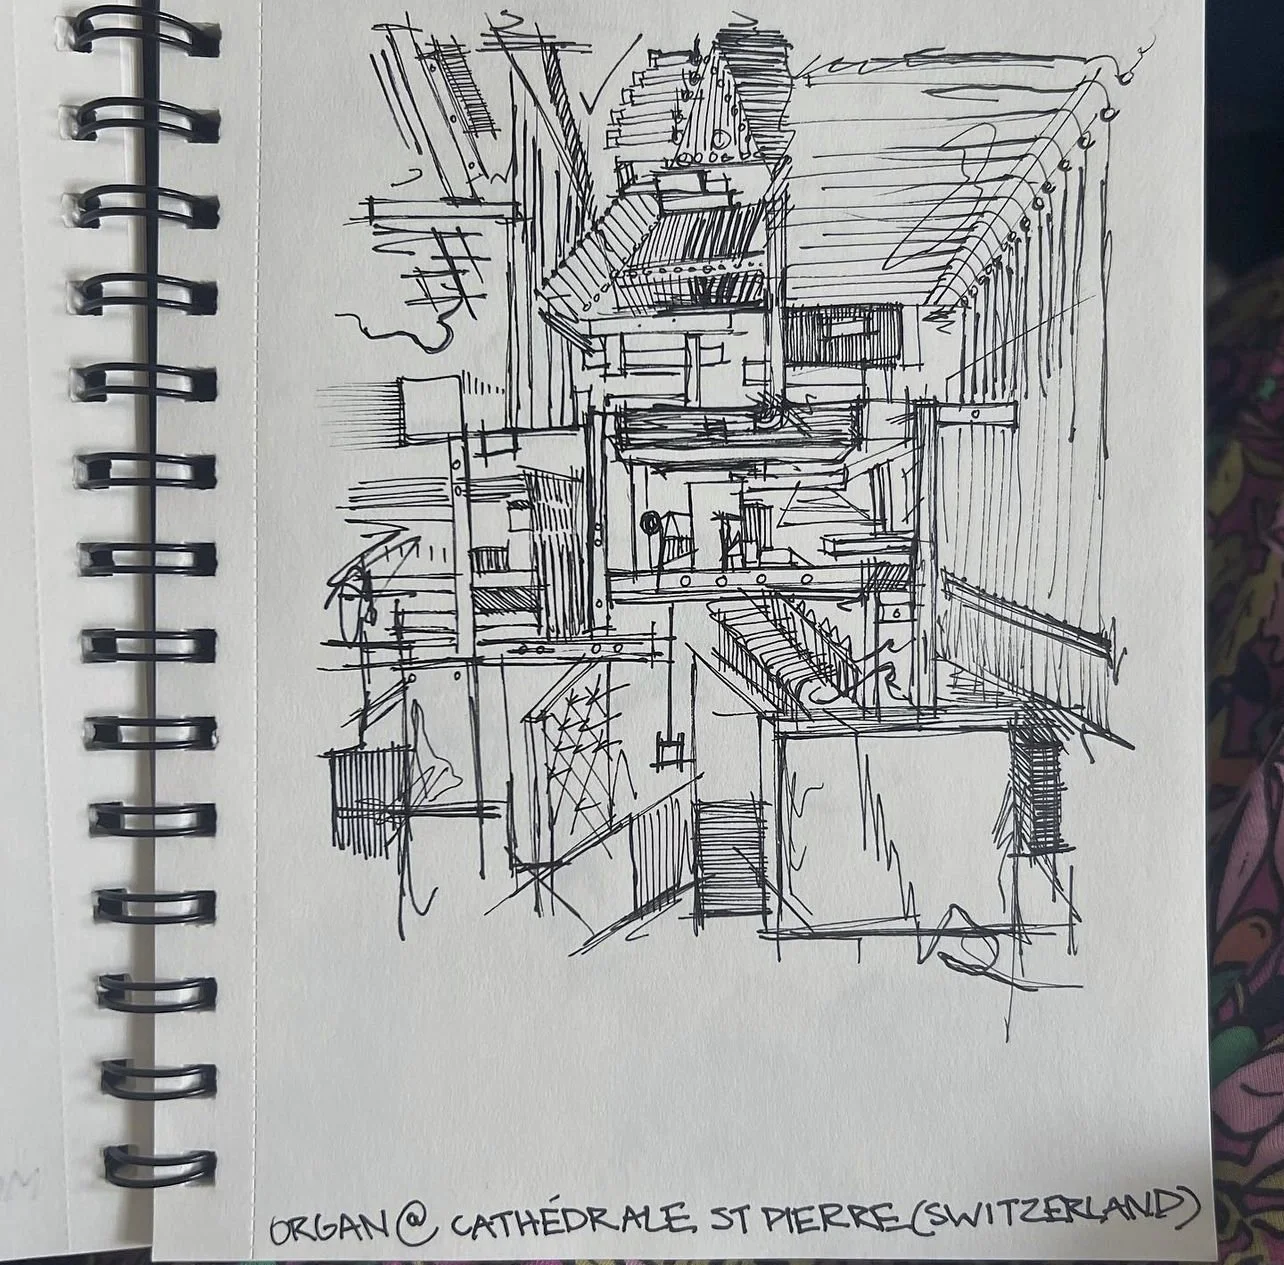 ORGAN @ CATHÉDRALE ST PIERRE (SWITZERLAND)